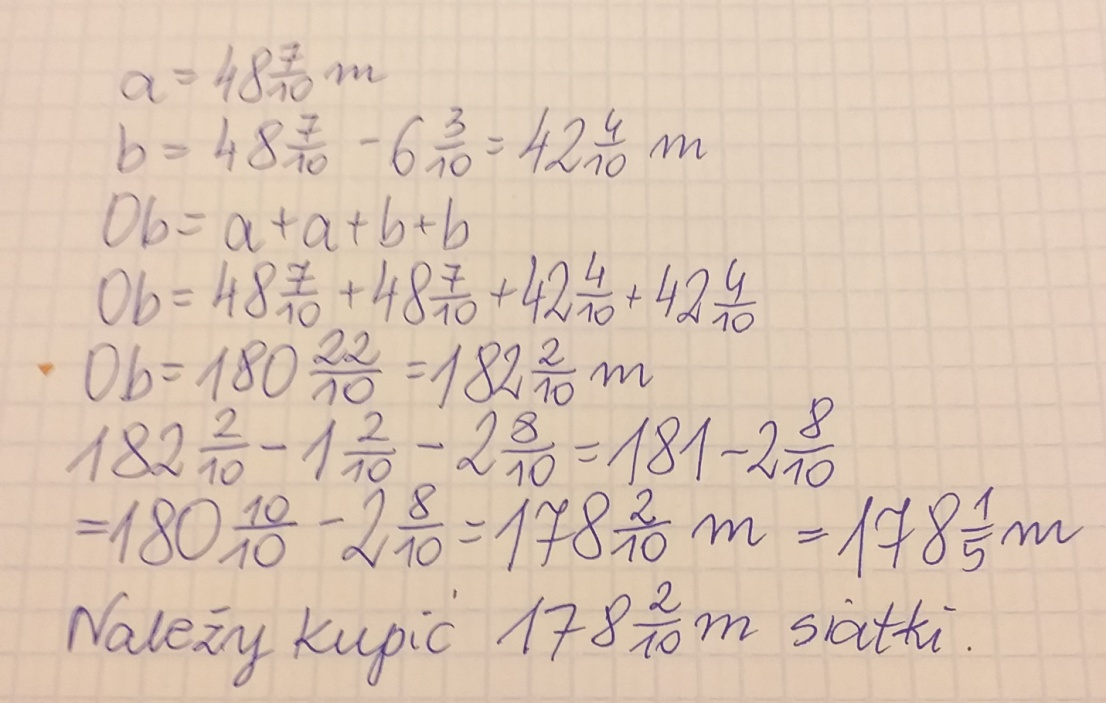 a = 48 7/10 m
b = 48 7/10 - 6 3/10 = 42 4/10 m
Ob = a + a + b + b
Ob = 48 7/10 + 48 7/10 + 42 4/10 + 42 4/10
Ob = 180 22/10 = 182 2/10 m
182 2/10 - 1 2/10 - 2 8/10 = 181 - 2 8/10
= 180 10/10 - 2 8/10 = 178 2/10 m = 178 1/5 m
Należy kupić 178 2/10 m siatki.